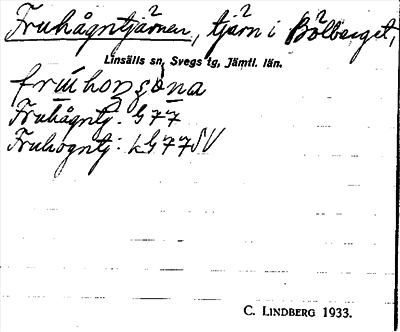 Fruhågntjärnen, tjärn i Bölberget,
Linsälls sn, Svegs tg, Jämtl. län.
Fruhågntj. G 77
Fruhogntj: LG 77 SV
C. LINDBERG 1933.